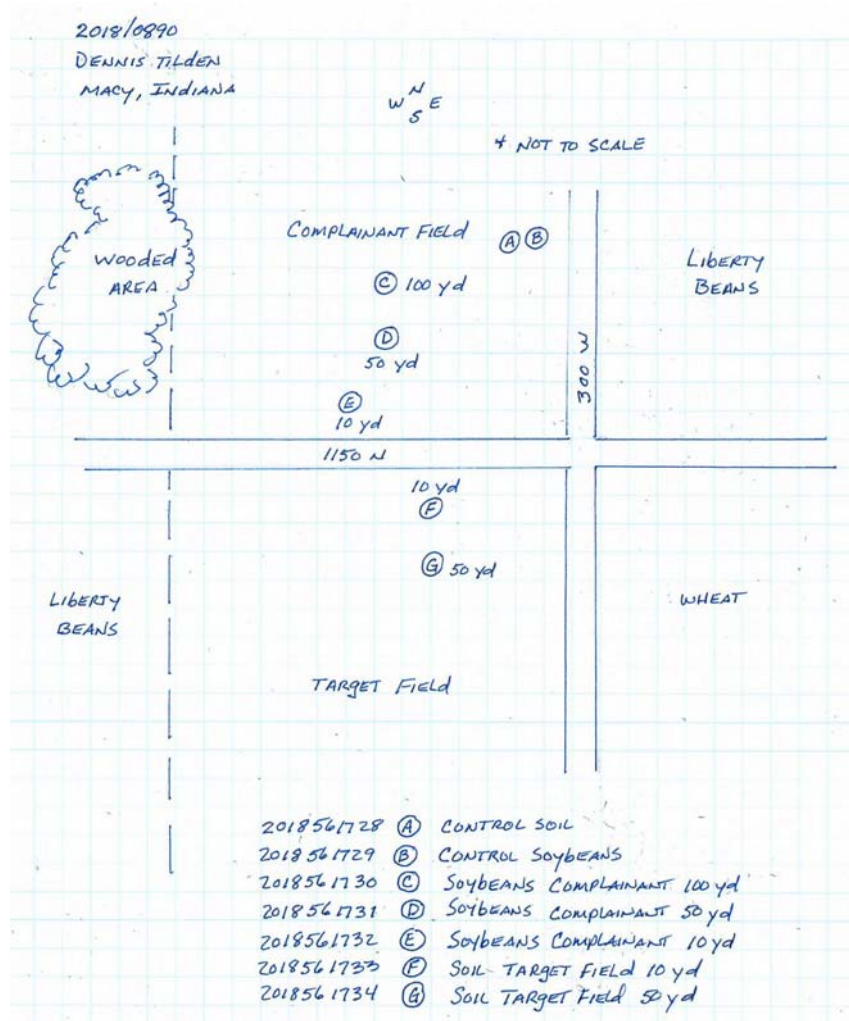 2018/0890
DENNIS TILDEN
MACY, INDIANA
N
W E
S
* NOT TO SCALE
COMPLAINANT FIELD
A B
WOODED
AREA
LIBERTY
BEANS
C 100 yd
D
50 yd
300 W
E
10 yd
1150 N
10 yd
F
G 50 yd
LIBERTY
BEANS
WHEAT
TARGET FIELD
2018561728 A CONTROL SOIL
2018561729 B CONTROL SOYBEANS
2018561730 C SOYBEANS COMPLAINANT 100 yd
2018561731 D SOYBEANS COMPLAINANT 50 yd
2018561732 E SOYBEANS COMPLAINANT 10 yd
2018561733 F SOIL TARGET FIELD 10 yd
2018561734 G SOIL TARGET FIELD 50 yd